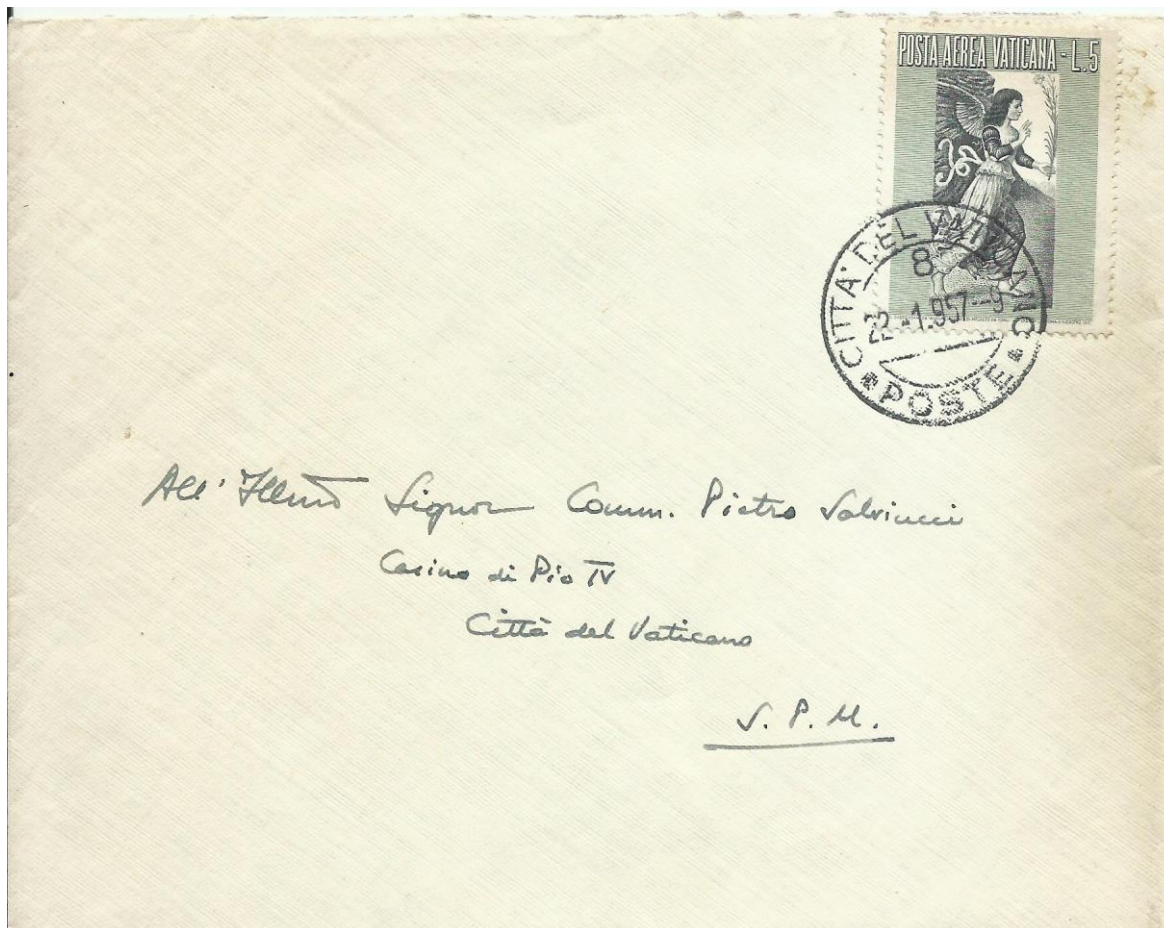 POSTA AEREA VATICANA - L.5
CITTA' DEL VATICANO
8
-1.957--9
* POSTE *
All' Illmo Signor Comm. Pietro Salviucci
Casino di Pio IV
Città del Vaticano
S. P. M.